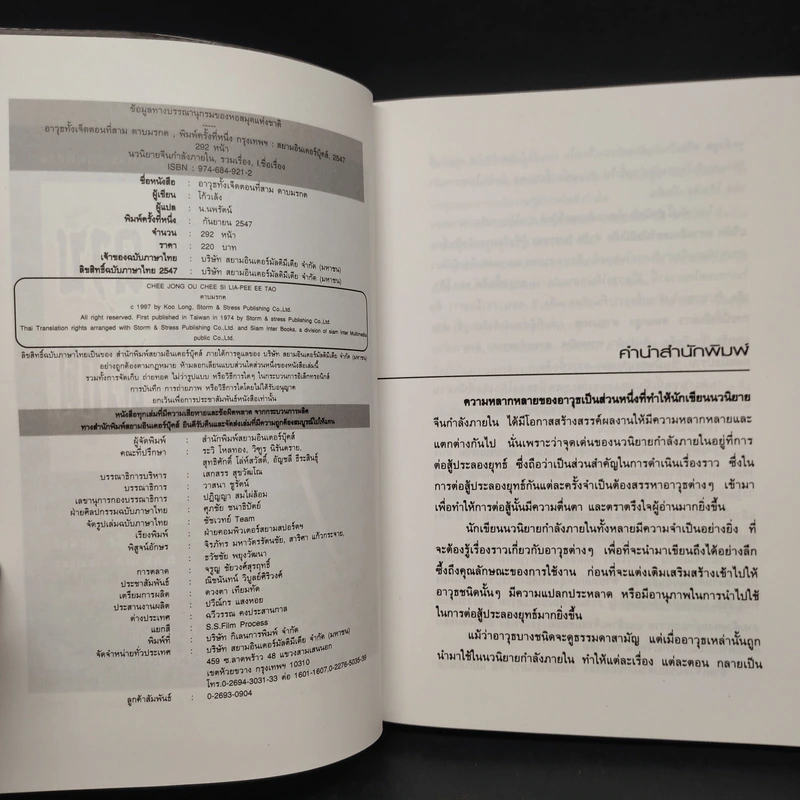 ข้อมูลทางบรรณานุกรมของหอสมุดแห่งชาติ
อาวุธทั้งเจ็ดตอนที่สาม ดาบมรกต , พิมพ์ครั้งที่หนึ่ง กรุงเทพฯ : สยามอินเตอร์บุ๊คส์, 2547
292 หน้า
นวนิยายจีนกำลังภายใน, รวมเรื่อง, I.ชื่อเรื่อง
ISBN : 974-684-921-2
ชื่อหนังสือ : อาวุธทั้งเจ็ดตอนที่สาม ดาบมรกต
ผู้เขียน : โก้วเล้ง
ผู้แปล : น.นพรัตน์
พิมพ์ครั้งที่หนึ่ง : กันยายน 2547
จำนวน : 292 หน้า
ราคา : 220 บาท
เจ้าของฉบับภาษาไทย : บริษัท สยามอินเตอร์มัลติมีเดีย จำกัด (มหาชน)
ลิขสิทธิ์ฉบับภาษาไทย 2547 : บริษัท สยามอินเตอร์มัลติมีเดีย จำกัด (มหาชน)
CHEE JONG OU CHEE SI LIA-PEE EE TAO
ดาบมรกต
c 1997 by Koo Long, Storm & Stress Publishing Co.,Ltd.
All right reserved. First published in Taiwan in 1974 by Storm & Stress Publishing Co.,Ltd.
Thai Translation rights arranged with Storm & Stress Publishing Co.,Ltd. and Siam Inter Books, a division of siam Inter Multimedia
public Co.,Ltd.
ลิขสิทธิ์ฉบับภาษาไทยเป็นของ สำนักพิมพ์สยามอินเตอร์บุ๊คส์ ภายใต้การดูแลของ บริษัท สยามอินเตอร์มัลติมีเดีย จำกัด (มหาชน)
อย่างถูกต้องตามกฎหมาย ห้ามลอกเลียนแบบส่วนใดส่วนหนึ่งของหนังสือเล่มนี้
รวมทั้งการจัดเก็บ ถ่ายทอด ไม่ว่ารูปแบบ หรือวิธีการใดๆ ในกระบวนการอิเล็กทรอนิกส์
การบันทึก การถ่ายภาพ หรือวิธีการใดโดยไม่ได้รับอนุญาต
ยกเว้นเพื่อการประชาสัมพันธ์หนังสือเท่านั้น
หนังสือทุกเล่มที่มีความเสียหายและข้อผิดพลาด จากกระบวนการผลิต
ทางสำนักพิมพ์สยามอินเตอร์บุ๊คส์ ยินดีรับคืนและจัดส่งเล่มที่มีความถูกต้องสมบูรณ์ไปให้แทน
ผู้จัดพิมพ์ : สำนักพิมพ์สยามอินเตอร์บุ๊คส์
คณะที่ปรึกษา : ระวิ โหลทอง, วิฑูร นิรันตราย,
สุทธิศักดิ์ โล่ห์สวัสดิ์, อัญชลี ธีระสินธุ์
บรรณาธิการบริหาร : เสกสรร สุขวัฒโน
บรรณาธิการ : วาสนา ชูรัตน์
เลขานุการกองบรรณาธิการ : ปฏิญญา สมไผ่ล้อม
ฝ่ายศิลปกรรมฉบับภาษาไทย : ศุภชัย ชนาธิปัตย์
จัดรูปเล่มฉบับภาษาไทย : ชัชเวทย์ Team
เรียงพิมพ์ : ฝ่ายคอมพิวเตอร์สยามสปอร์ตฯ
พิสูจน์อักษร : จิรภัทร มหาวัตรรัตนชัย, สาริศา แก้วกระจาย,
ธวัชชัย พยุงวัฒนา
การตลาด : จรูญ ชัยวงศ์สุรฤทธิ์
ประชาสัมพันธ์ : ณิชนันทน์ วิบูลย์ศิริวงศ์
เตรียมการผลิต : ดวงตา เทียมทัด
ประสานงานผลิต : ปวีณ์กร แสงหอย
ต่างประเทศ : ฉวีวรรณ คงประสานกาล
แยกสี : S.S.Film Process
พิมพ์ที่ : บริษัท กิเลนการพิมพ์ จำกัด
จัดจำหน่ายทั่วประเทศ : บริษัท สยามอินเตอร์มัลติมีเดีย จำกัด (มหาชน)
459 ซ.ลาดพร้าว 48 แขวงสามเสนนอก
เขตห้วยขวาง กรุงเทพฯ 10310
โทร.0-2694-3031-33 ต่อ 1601-1607,0-2276-5035-39
ลูกค้าสัมพันธ์ : 0-2693-0904
คำนำสำนักพิมพ์
ความหลากหลายของอาวุธเป็นส่วนหนึ่งที่ทำให้นักเขียนนวนิยาย
จีนกำลังภายใน ได้มีโอกาสสร้างสรรค์ผลงานให้มีความหลากหลายและ
แตกต่างกันไป นั่นเพราะว่าจุดเด่นของนวนิยายกำลังภายในอยู่ที่การ
ต่อสู้ประลองยุทธ์ ซึ่งถือว่าเป็นส่วนสำคัญในการดำเนินเรื่องราว ซึ่งใน
การต่อสู้ประลองยุทธ์กันแต่ละครั้งจำเป็นต้องสรรหาอาวุธต่างๆ เข้ามา
เพื่อทำให้การต่อสู้นั้นมีความตื่นตา และตราตรึงใจผู้อ่านมากยิ่งขึ้น
นักเขียนนวนิยายกำลังภายในทั้งหลายมีความจำเป็นอย่างยิ่ง ที่
จะต้องรู้เรื่องราวเกี่ยวกับอาวุธต่างๆ เพื่อที่จะนำมาเขียนถึงได้อย่างลึก
ซึ้งถึงคุณลักษณะของการใช้งาน ก่อนที่จะแต่งเติมเสริมสร้างเข้าไปให้
อาวุธชนิดนั้นๆ มีความแปลกประหลาด หรือมีอานุภาพในการนำไปใช้
ในการต่อสู้ประลองยุทธ์มากยิ่งขึ้น
แม้ว่าอาวุธบางชนิดจะดูธรรมดาสามัญ แต่เมื่ออาวุธเหล่านั้นถูก
นำมาใช้ในนวนิยายกำลังภายใน ทำให้แต่ละเรื่อง แต่ละตอน กลายเป็น